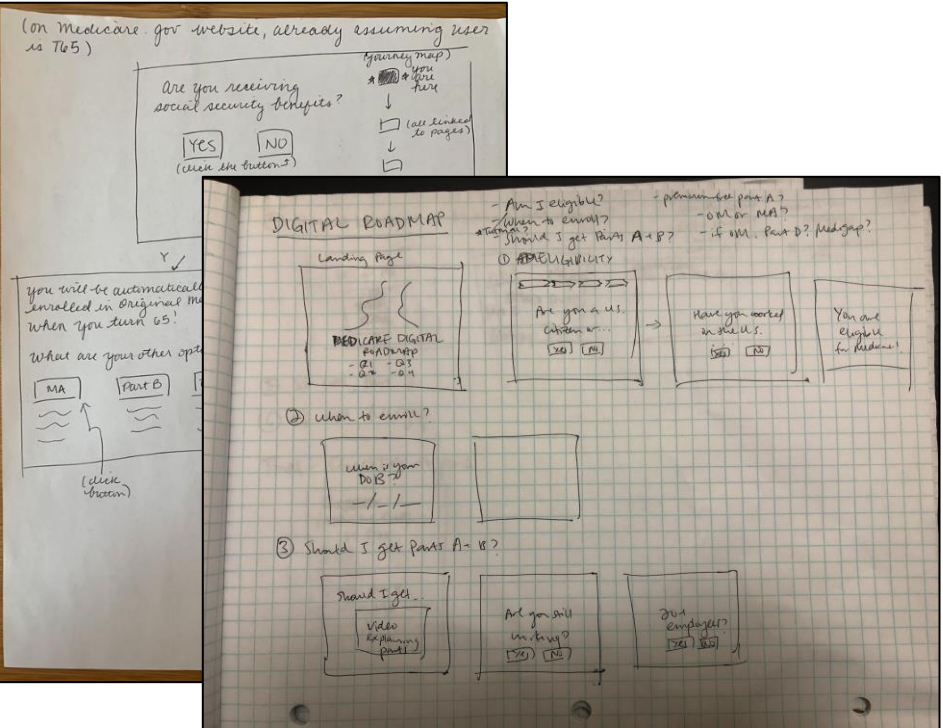 (on medicare.gov website, already assuming user
is T65)
(journey map)
you
are
here
Are you receiving
social security benefits?
YES NO
(click the button)
(all linked
to pages)
Y
you will be automatical
enrolled in Original M
when you turn 65!
what are your other opt
MA Part B
(click
button)
DIGITAL ROADMAP
- Am I eligible?
- When to enroll?
- Should I get Parts A + B?
- premium-free part A?
- OM or MA?
- if OM, Part D? Medigap?
Landing Page
MEDICARE DIGITAL
ROADMAP
- Q1 - Q3
- Q2 - Q4
① ELIGIBILITY
Are you a U.S.
citizen or...
Yes No
Have you worked
in the U.S.
Yes No
You are
eligible
for Medicare!
② When to enroll?
When is your
DOB?
_/_/_
③ Should I get Parts A + B?
Should I get...
Video
explaining
parts
Are you still
working?
Yes No
20+
employees?
Yes No